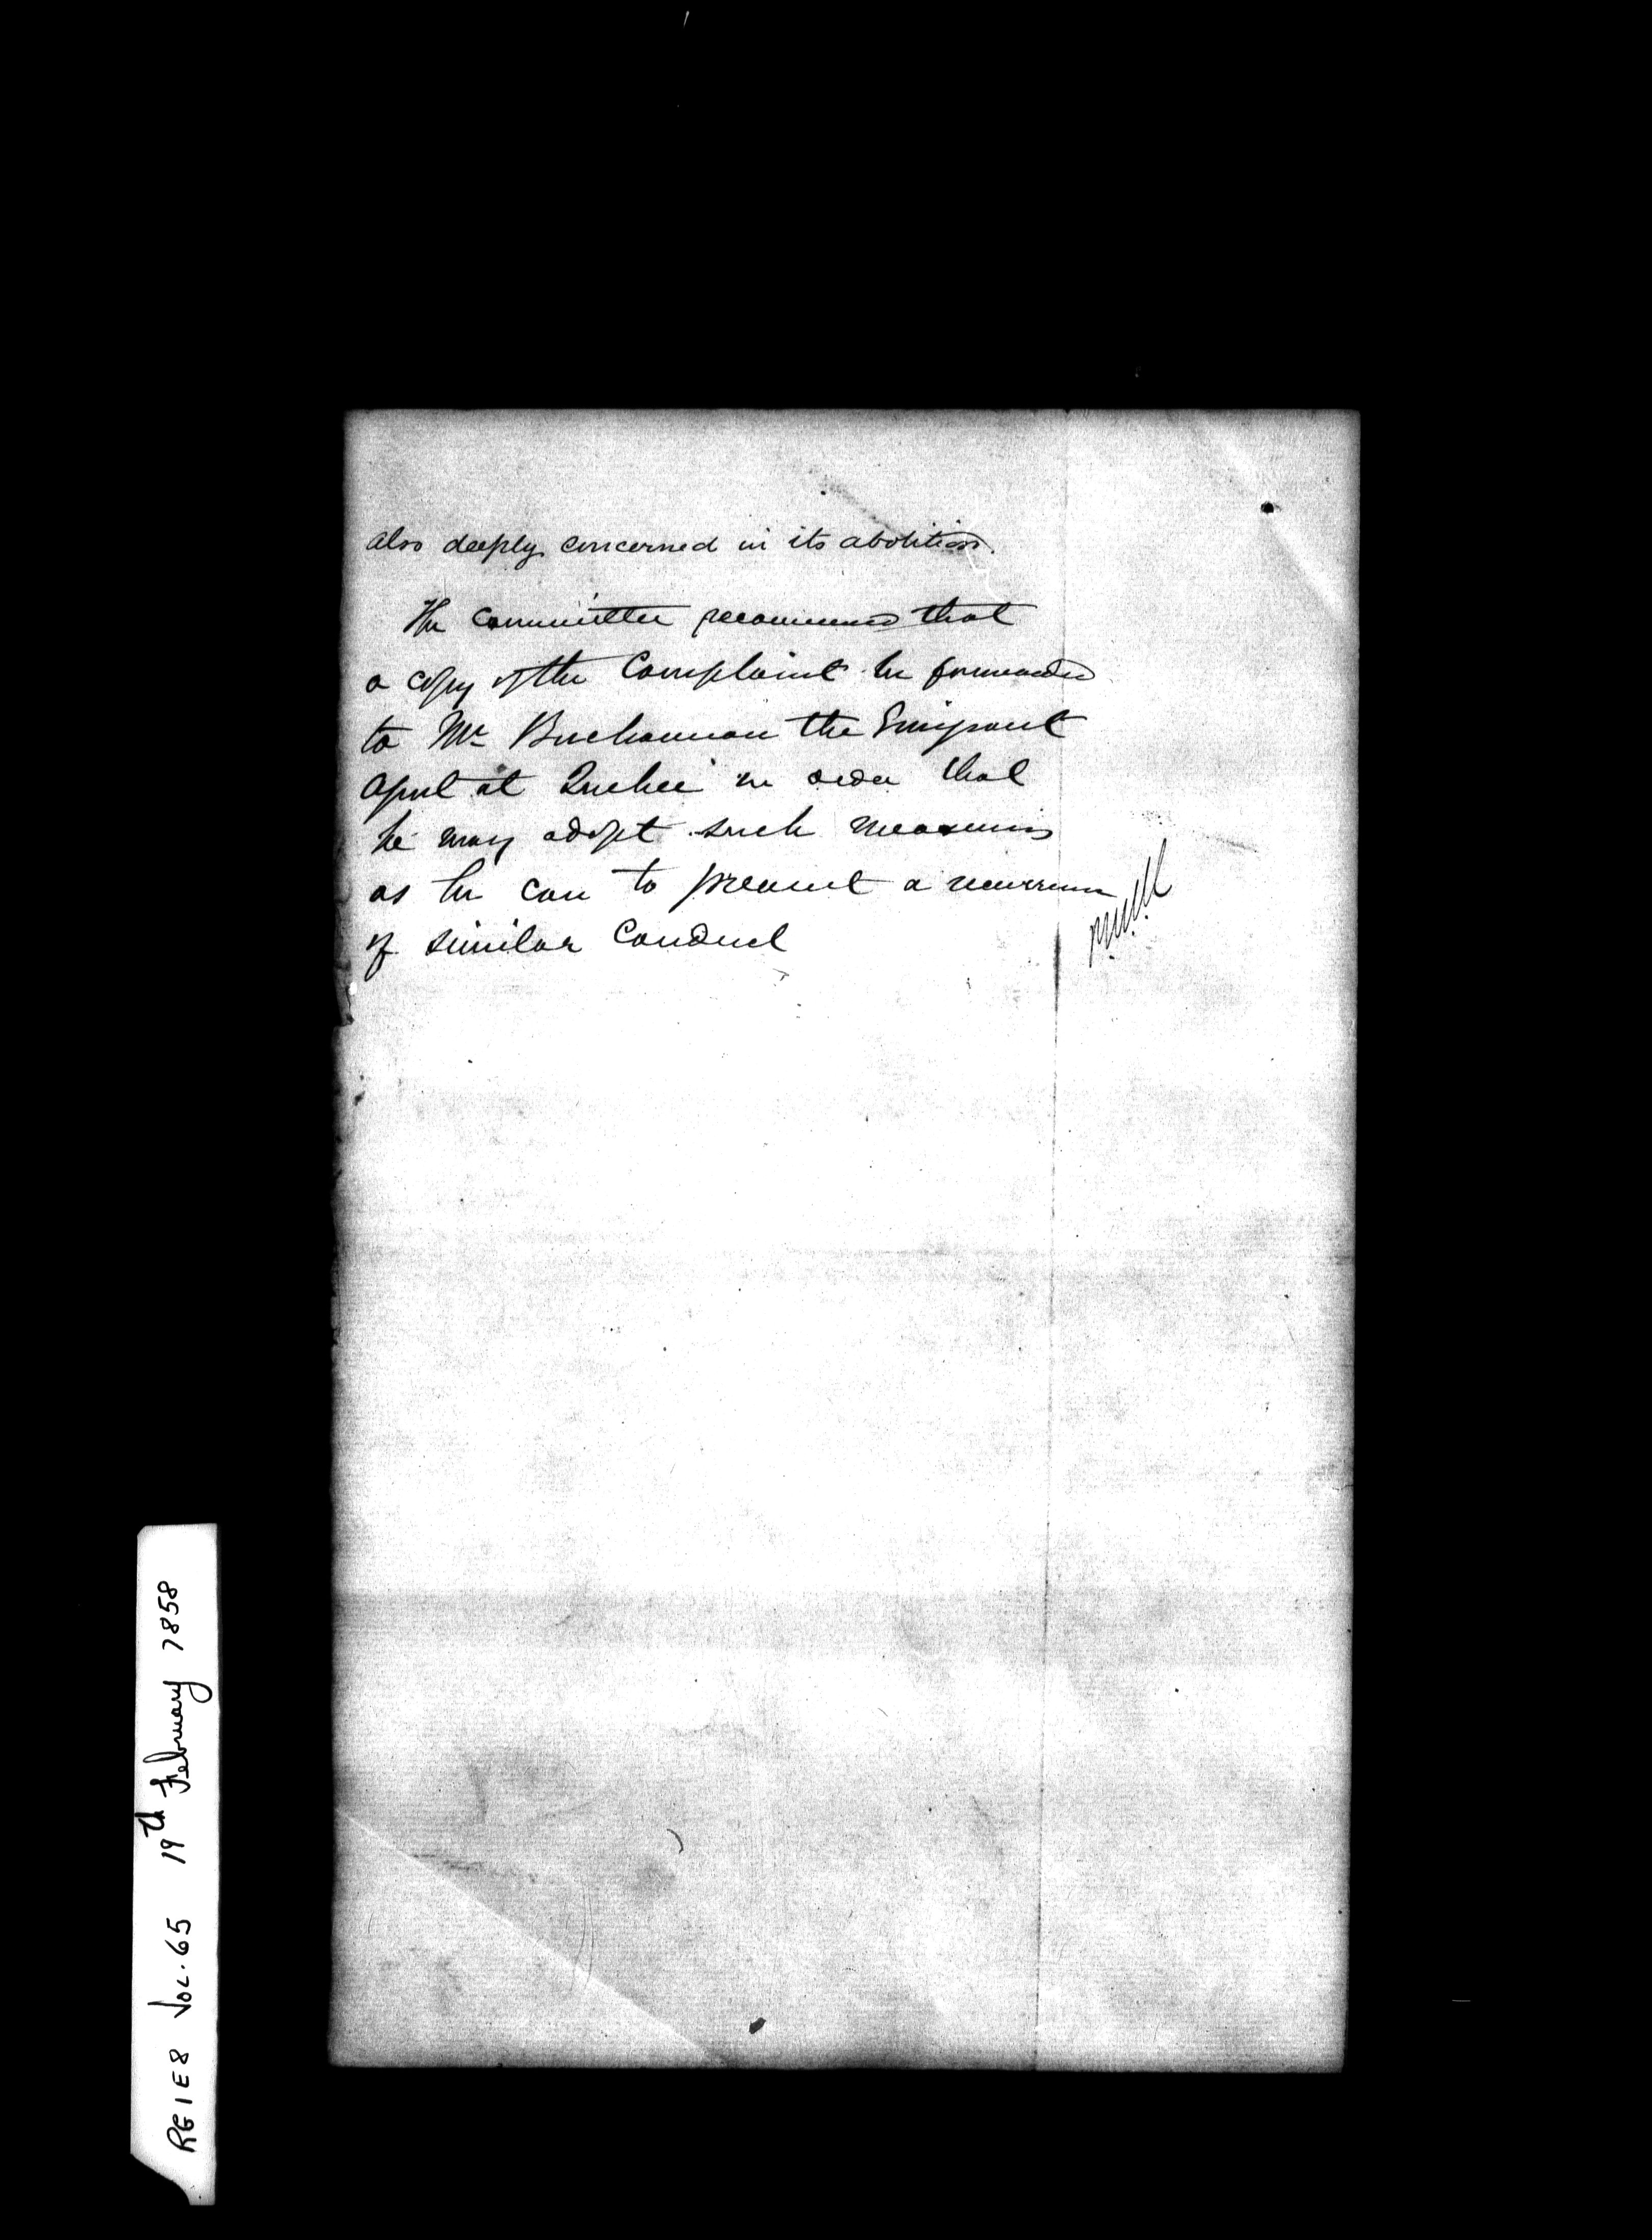 also deeply concerned in its abolition.
The Committee recommend that
a copy of the Complaint be forwarded
to Mr Buchannan the Emigrant
Agent at Quebec in order that
he may adopt such measures
as he can to prevent a recurrence
of similar Conduct
RG1E8 VOL. 65 19th February 1858